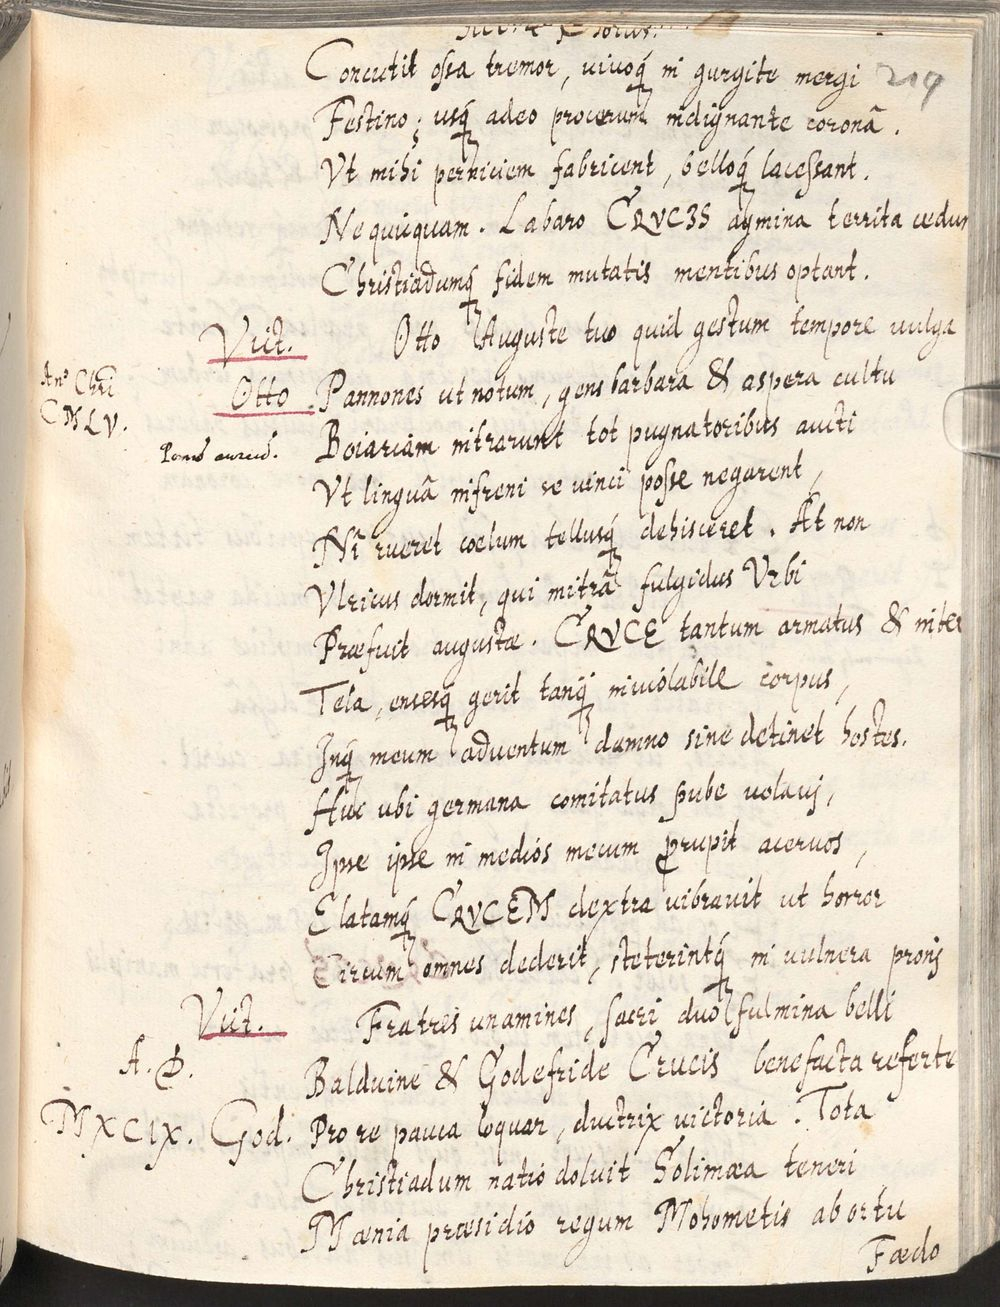 Concutit ossa tremor, viuoq́ in gurgite mergi 219
Festino; usq́ adeo procerum indignante coronã.
Vt mihi perniciem fabricent, belloq́ lacessant.
Nequicquam. Labaro CRVCIS agmina territa cedun
Christiadumq́ fidem mutatis mentibus optant.
Vict. Otto Auguste tuo quid gestum tempore uulga
Otto. Pannones ut notum, gens barbara & aspera cultu
Anº Chri
CMLV.
Boiariam intrarunt tot pugnatoribus aucti
Vt linguã infreni se vinci posse negarent,
Ni rueret coelum tellusq́ dehisceret. At non
Vlricus dormit, qui mitrã fulgidus Vrbi
Præfuit augustæ. CRVCE tantum armatus & inter
Tela, ensesq́ gerit tanq́ inuiolabile corpus,
Inq́ meum aduentum damno sine detinet hostes.
Huc ubi germana comitatus pube uolauj,
Ipse ipse in medios mecum prupit aceruos,
Elatamq́ CRVCEM dextra uibrauit ut horror
Circum omnes dederit, steterintq́ in uulnera pronj
Vict. Fratres unamines, sacri duo fulmina belli
A. D.
Balduine & Godefride Crucis benefacta referte
MXCIX. God. Pro re pauca loquar, ductrix victoria. Tota
Christiadum natio doluit Solimæa teneri
Mænia præsidio regum Mohometis abortu
Fædo